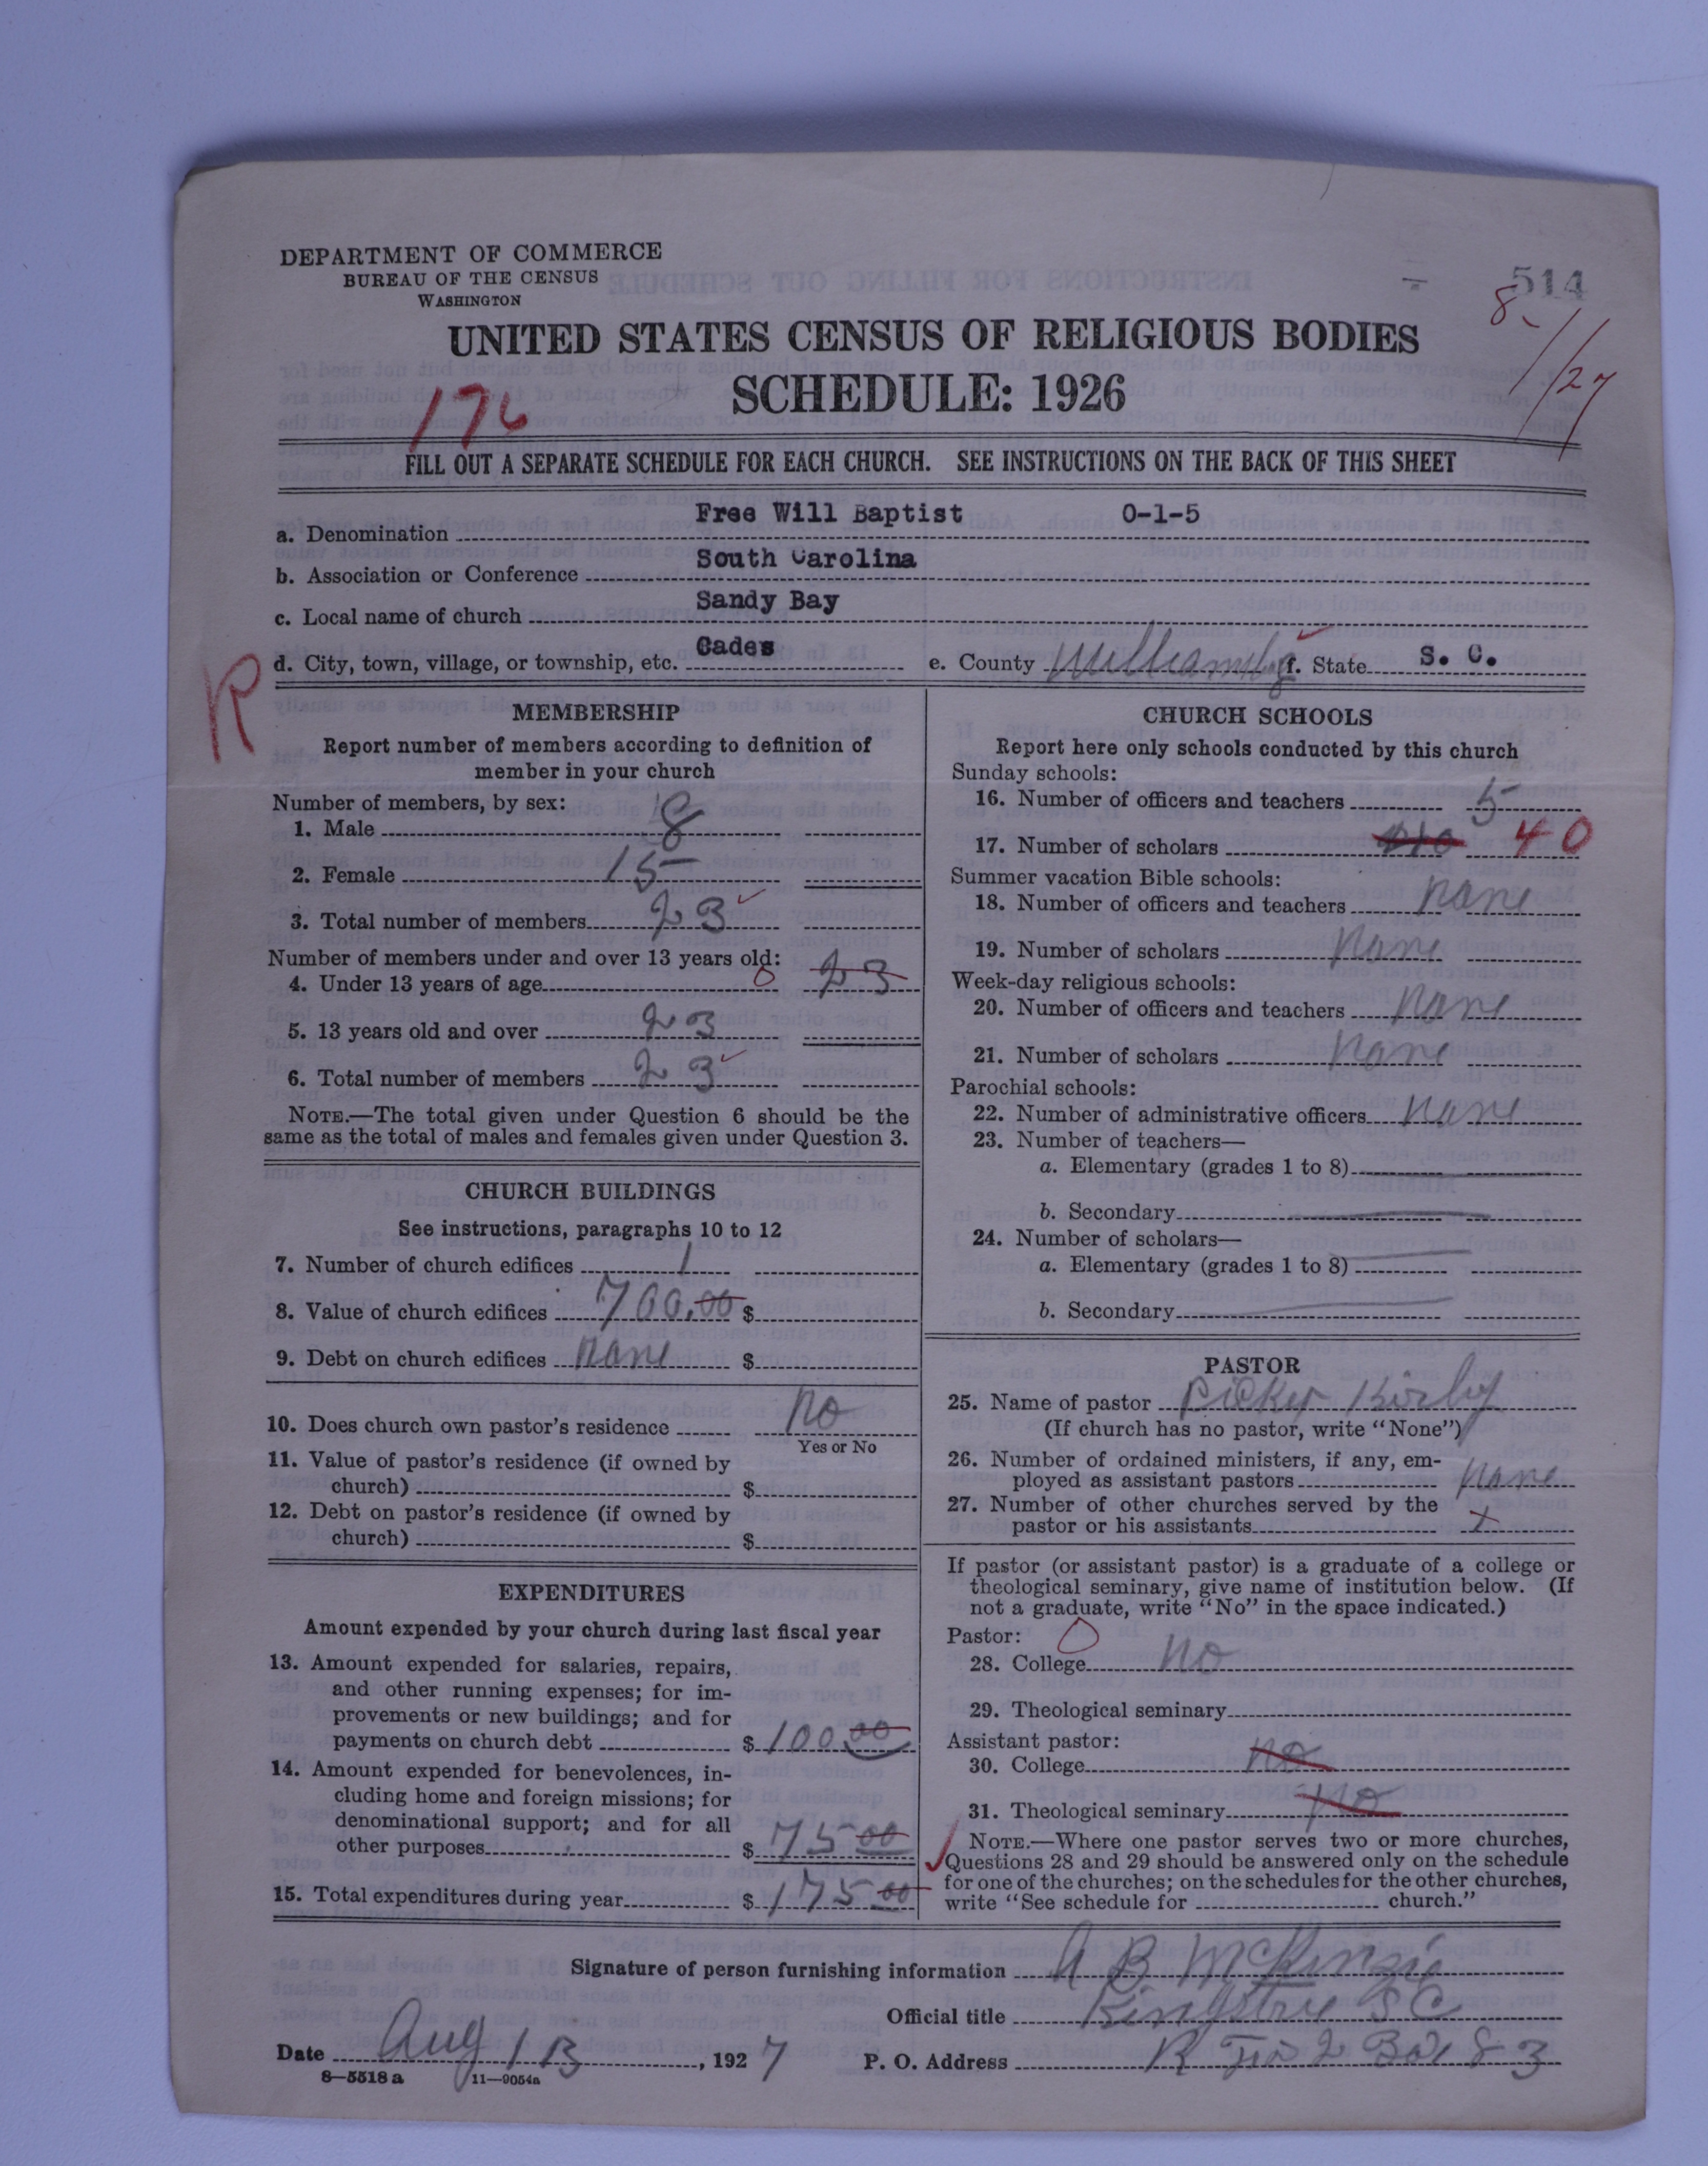 DEPARTMENT OF COMMERCE
BUREAU OF THE CENSUS
WASHINGTON
514
8-1/27
UNITED STATES CENSUS OF RELIGIOUS BODIES
SCHEDULE: 1926
176
FILL OUT A SEPARATE SCHEDULE FOR EACH CHURCH. SEE INSTRUCTIONS ON THE BACK OF THIS SHEET
a. Denomination Free Will Baptist 0-1-5
b. Association or Conference South Carolina
c. Local name of church Sandy Bay
d. City, town, village, or township, etc. Cades e. County Williamsbg f. State S. C.
R
MEMBERSHIP
Report number of members according to definition of
member in your church
Number of members, by sex:
1. Male 8
2. Female 15
3. Total number of members 23
Number of members under and over 13 years old:
4. Under 13 years of age 0 23
5. 13 years old and over 23
6. Total number of members 23
NOTE.—The total given under Question 6 should be the
same as the total of males and females given under Question 3.
CHURCH BUILDINGS
See instructions, paragraphs 10 to 12
7. Number of church edifices 1
8. Value of church edifices 700.00 $
9. Debt on church edifices none $
10. Does church own pastor's residence No
Yes or No
11. Value of pastor's residence (if owned by
church) $
12. Debt on pastor's residence (if owned by
church) $
EXPENDITURES
Amount expended by your church during last fiscal year
13. Amount expended for salaries, repairs,
and other running expenses; for im-
provements or new buildings; and for
payments on church debt $ 100 00
14. Amount expended for benevolences, in-
cluding home and foreign missions; for
denominational support; and for all
other purposes $ 75 00
15. Total expenditures during year $ 175 00
CHURCH SCHOOLS
Report here only schools conducted by this church
Sunday schools:
16. Number of officers and teachers 5
17. Number of scholars 40
Summer vacation Bible schools:
18. Number of officers and teachers none
19. Number of scholars none
Week-day religious schools:
20. Number of officers and teachers none
21. Number of scholars none
Parochial schools:
22. Number of administrative officers none
23. Number of teachers—
a. Elementary (grades 1 to 8)
b. Secondary
24. Number of scholars—
a. Elementary (grades 1 to 8)
b. Secondary
PASTOR
25. Name of pastor Kirby
(If church has no pastor, write "None")
26. Number of ordained ministers, if any, em-
ployed as assistant pastors none
27. Number of other churches served by the
pastor or his assistants x
If pastor (or assistant pastor) is a graduate of a college or
theological seminary, give name of institution below. (If
not a graduate, write "No" in the space indicated.)
Pastor: 0
28. College no
29. Theological seminary
Assistant pastor:
30. College no
31. Theological seminary no
NOTE.—Where one pastor serves two or more churches,
Questions 28 and 29 should be answered only on the schedule
for one of the churches; on the schedules for the other churches,
write "See schedule for church."
Signature of person furnishing information A B McKinzie
Official title Kingstree S C
Date Aug 13, 1927 P. O. Address R 2 Box 83
8—5518 a 11—9054a